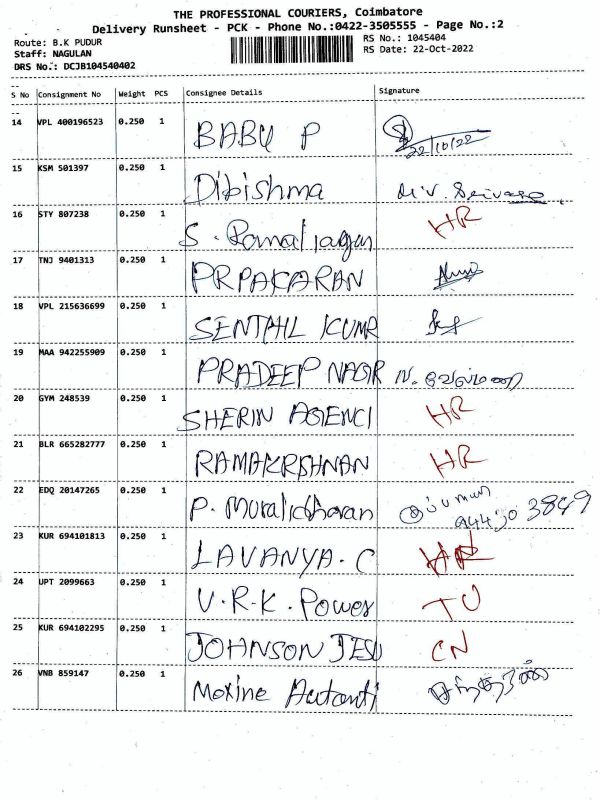 THE PROFESSIONAL COURIERS, Coimbatore
Delivery Runsheet - PCK - Phone No.:0422-3505555 - Page No.:2
Route: B.K PUDUR RS No.: 1045404
Staff: NAGULAN RS Date: 22-Oct-2022
DRS No.: DCJB104540402
S No Consignment No Weight PCS Consignee Details Signature
14 VPL 400196523 0.250 1 BABU P 22/10/22
15 KSM 501397 0.250 1 Dibishma
16 STY 807238 0.250 1 S. Ramaljagan HR
17 TNJ 9401313 0.250 1 PRPAKARAN
18 VPL 215636699 0.250 1 SENTHIL KUMR
19 MAA 942255909 0.250 1 PRADEEP NAGR
20 GYM 248539 0.250 1 SHERIN AGENCI HR
21 BLR 665282777 0.250 1 RAMAKRSHNAN HR
22 EDQ 20147265 0.250 1 P. Muralidharan
23 KUR 694101813 0.250 1 LAVANYA. C
24 UPT 2099663 0.250 1 V.R.K. Power TU
25 KUR 694102295 0.250 1 JOHNSON JESU CN
26 VNB 859147 0.250 1 Moxine Autonti